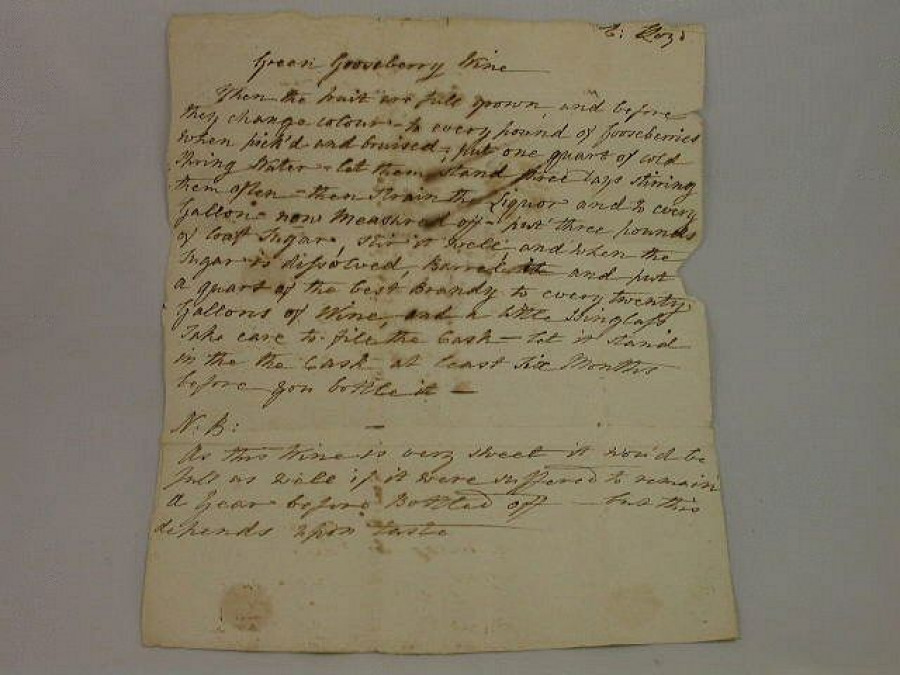 E:
Green Gooseberry Wine
When the fruit are full grown, and before
they change colour - to every pound of Gooseberries
when pick'd and bruised, put one quart of cold
Spring Water - let them stand three Days stirring
them often - then Strain the Liquor and to every
Gallon now Measured off - put three pounds
of Loaf Sugar, stir it well, and when the
Sugar is dissolved, Barrel it and put
a quart of the best Brandy to every twenty
Gallons of Wine, and a little Isinglass
Take care to fill the Cask - let it stand
in the the Cask at least Six Months
before you bottle it -
N: B:
As this Wine is very sweet it wou'd be
full as well if it were suffered to remain
a Year before Bottled off - but this
depends upon taste